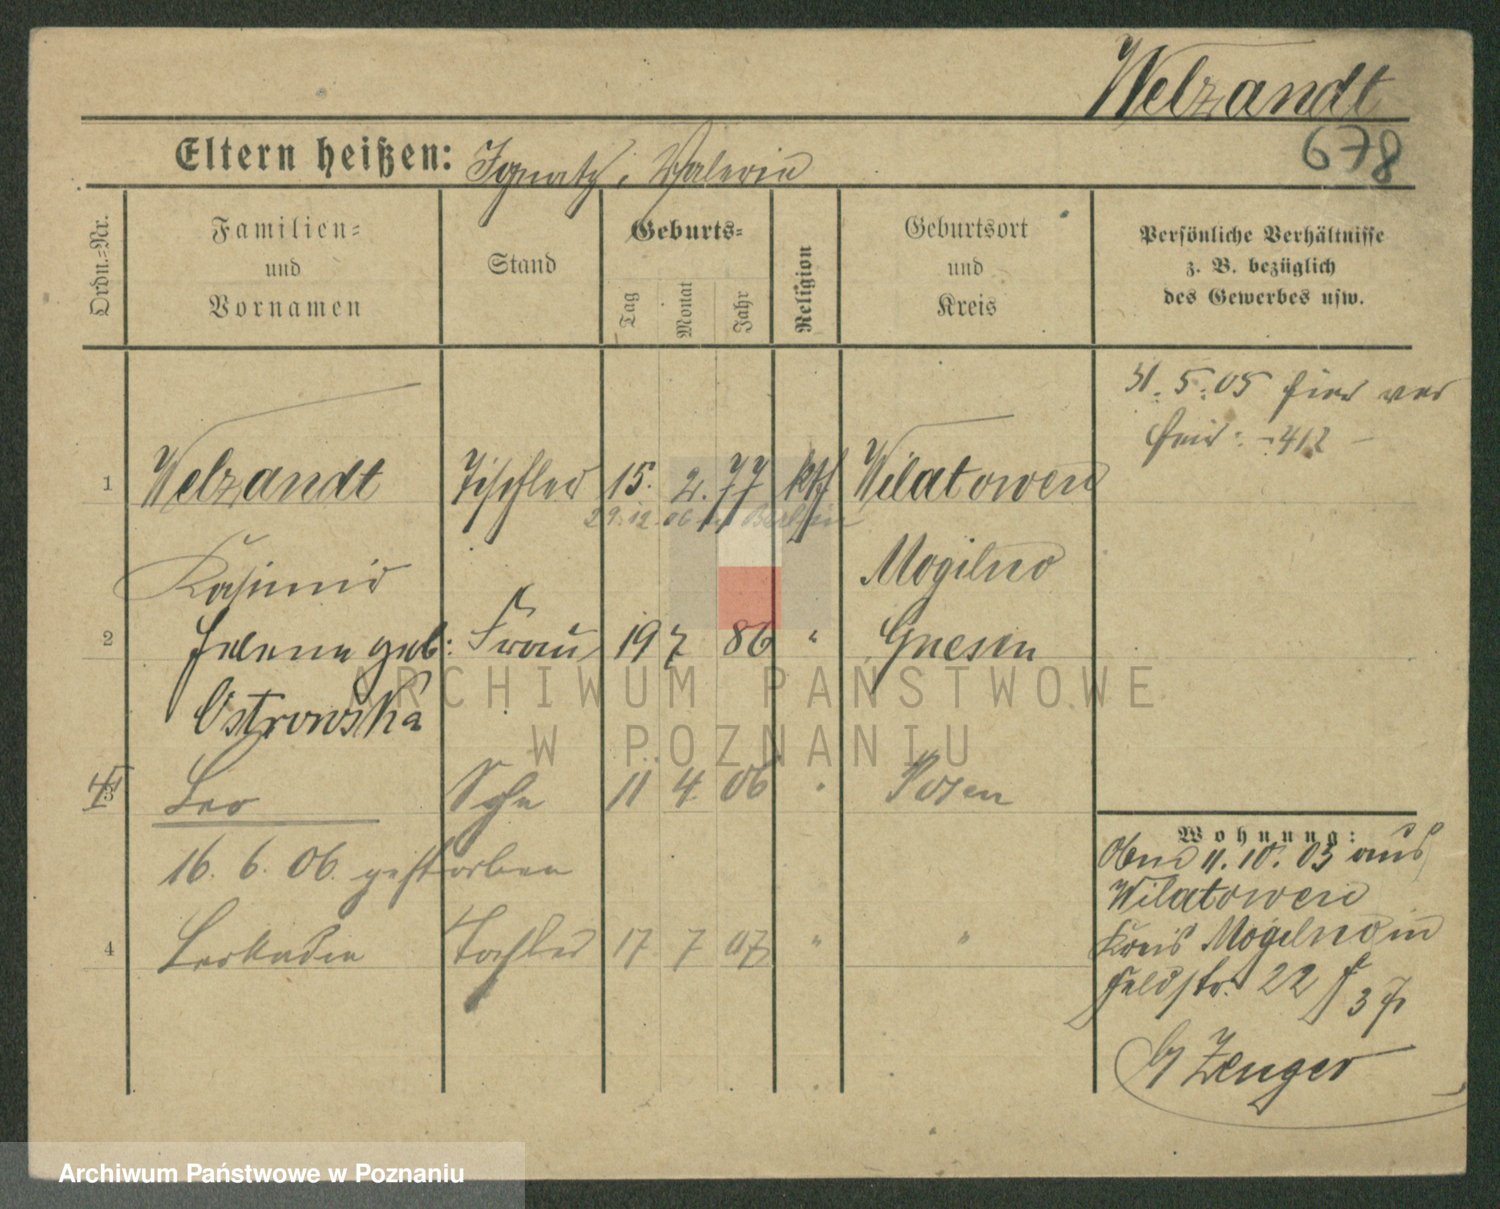 Welzandt
678
Eltern heißen: Ignatz, Valeria
Ordn.-Nr.
Familien-
und
Vornamen
Stand
Geburts-
Tag
Monat
Jahr
Religion
Geburtsort
und
Kreis
Persönliche Verhältnisse
z. B. bezüglich
des Gewerbes usw.
31. 5. 05 hier ver
heir: -412-
1 Welzandt Tischler 15. 2. 77 kth Wilatowen
29.12.06 Berlin
Kasimir Mogilno
2 Helena geb: Frau 19 7 86 " Gnesen
Ostrowska
3 Leo Sohn 11 4. 06 " Posen
16. 6. 06. gestorben
4 Leokadia Tochter 17 7 07 " "
Wohnung:
11. 10. 03 aus
Wilatowen
Kreis Mogilno in
Feldstr. 22
Zenger
ARCHIWUM PAŃSTWOWE
W POZNANIU
Archiwum Państwowe w Poznaniu